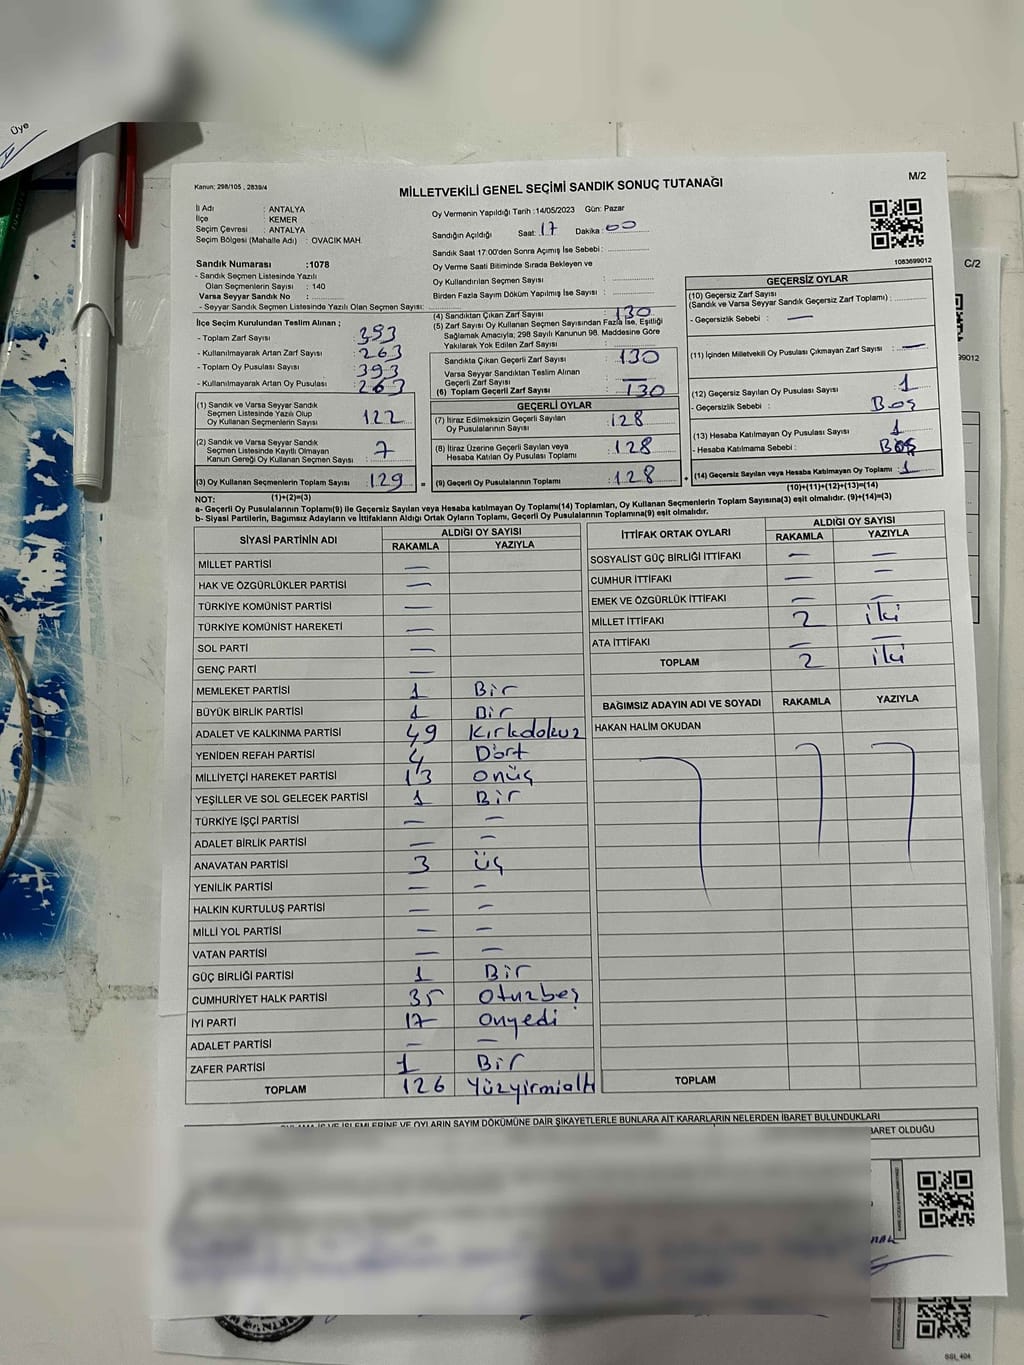 Üye
Kanun; 298/105 , 2839/4
MİLLETVEKİLİ GENEL SEÇİMİ SANDIK SONUÇ TUTANAĞI
M/2
İl Adı : ANTALYA
İlçe : KEMER
Seçim Çevresi : ANTALYA
Seçim Bölgesi (Mahalle Adı) : OVACIK MAH.
Oy Vermenin Yapıldığı Tarih :14/05/2023 Gün: Pazar
Sandığın Açıldığı Saat: 17 Dakika: 00
Sandık Saat 17:00'den Sonra Açımış İse Sebebi :
Oy Verme Saati Bitiminde Sırada Bekleyen ve
Oy Kullandırılan Seçmen Sayısı :
Birden Fazla Sayım Döküm Yapılmış İse Sayısı :
1083699012
Sandık Numarası :1078
- Sandık Seçmen Listesinde Yazılı
Olan Seçmenlerin Sayısı : 140
Varsa Seyyar Sandık No :
- Seyyar Sandık Seçmen Listesinde Yazılı Olan Seçmen Sayısı:
İlçe Seçim Kurulundan Teslim Alınan ;
- Toplam Zarf Sayısı : 393
- Kullanılmayarak Artan Zarf Sayısı : 263
- Toplam Oy Pusulası Sayısı : 393
- Kullanılmayarak Artan Oy Pusulası : 263
(1) Sandık ve Varsa Seyyar Sandık
Seçmen Listesinde Yazılı Olup
Oy Kullanan Seçmenlerin Sayısı : 122
(2) Sandık ve Varsa Seyyar Sandık
Seçmen Listesinde Kayıtlı Olmayan
Kanun Gereği Oy Kullanan Seçmen Sayısı : 7
(3) Oy Kullanan Seçmenlerin Toplam Sayısı : 129
(4) Sandıktan Çıkan Zarf Sayısı : 130
(5) Zarf Sayısı Oy Kullanan Seçmen Sayısından Fazla İse, Eşitliği
Sağlamak Amacıyla; 298 Sayılı Kanunun 98. Maddesine Göre
Yakılarak Yok Edilen Zarf Sayısı :
Sandıkta Çıkan Geçerli Zarf Sayısı : 130
Varsa Seyyar Sandıktan Teslim Alınan
Geçerli Zarf Sayısı : —
(6) Toplam Geçerli Zarf Sayısı : 130
GEÇERLİ OYLAR
(7) İtiraz Edilmeksizin Geçerli Sayılan
Oy Pusulalarının Sayısı : 128
(8) İtiraz Üzerine Geçerli Sayılan veya
Hesaba Katılan Oy Pusulası Toplamı : 128
= (9) Geçerli Oy Pusulalarının Toplamı : 128
GEÇERSİZ OYLAR
(10) Geçersiz Zarf Sayısı
(Sandık ve Varsa Seyyar Sandık Geçersiz Zarf Toplamı) :
- Geçersizlik Sebebi : —
(11) İçinden Milletvekili Oy Pusulası Çıkmayan Zarf Sayısı : —
(12) Geçersiz Sayılan Oy Pusulası Sayısı : 1
- Geçersizlik Sebebi : Boş
(13) Hesaba Katılmayan Oy Pusulası Sayısı : 1
- Hesaba Katılmama Sebebi :
+ (14) Geçersiz Sayılan veya Hesaba Katılmayan Oy Toplamı : 1
(10)+(11)+(12)+(13)=(14)
NOT: (1)+(2)=(3)
a- Geçerli Oy Pusulalarının Toplamı(9) ile Geçersiz Sayılan veya Hesaba katılmayan Oy Toplamı(14) Toplamları, Oy Kullanan Seçmenlerin Toplam Sayısına(3) eşit olmalıdır. (9)+(14)=(3)
b- Siyasi Partilerin, Bağımsız Adayların ve İttifakların Aldığı Ortak Oyların Toplamı, Geçerli Oy Pusulalarının Toplamına(9) eşit olmalıdır.
SİYASİ PARTİNİN ADI ALDIĞI OY SAYISI
RAKAMLA YAZIYLA
MİLLET PARTİSİ —
HAK VE ÖZGÜRLÜKLER PARTİSİ —
TÜRKİYE KOMÜNİST PARTİSİ —
TÜRKİYE KOMÜNİST HAREKETİ —
SOL PARTİ —
GENÇ PARTİ —
MEMLEKET PARTİSİ 1 Bir
BÜYÜK BİRLİK PARTİSİ 1 Bir
ADALET VE KALKINMA PARTİSİ 49 Kırkdokuz
YENİDEN REFAH PARTİSİ 4 Dört
MİLLİYETÇİ HAREKET PARTİSİ 13 onüç
YEŞİLLER VE SOL GELECEK PARTİSİ 1 Bir
TÜRKİYE İŞÇİ PARTİSİ — —
ADALET BİRLİK PARTİSİ — —
ANAVATAN PARTİSİ 3 üç
YENİLİK PARTİSİ — —
HALKIN KURTULUŞ PARTİSİ — —
MİLLİ YOL PARTİSİ — —
VATAN PARTİSİ — —
GÜÇ BİRLİĞİ PARTİSİ 1 Bir
CUMHURİYET HALK PARTİSİ 35 Otuzbeş
İYİ PARTİ 17 Onyedi
ADALET PARTİSİ — —
ZAFER PARTİSİ 1 Bir
TOPLAM 126 Yüzyirmialtı
İTTİFAK ORTAK OYLARI ALDIĞI OY SAYISI
RAKAMLA YAZIYLA
SOSYALİST GÜÇ BİRLİĞİ İTTİFAKI — —
CUMHUR İTTİFAKI — —
EMEK VE ÖZGÜRLÜK İTTİFAKI — —
MİLLET İTTİFAKI 2 iki
ATA İTTİFAKI — —
TOPLAM 2 iki
BAĞIMSIZ ADAYIN ADI VE SOYADI RAKAMLA YAZIYLA
HAKAN HALİM OKUDAN
TOPLAM
İŞLEMLERİNE VE OYLARIN SAYIM DÖKÜMÜNE DAİR ŞİKAYETLERLE BUNLARA AİT KARARLARIN NELERDEN İBARET BULUNDUKLARI
BARET OLDUĞU
C/2
99012